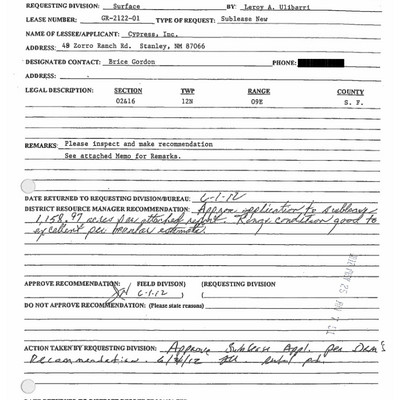 REQUESTING DIVISION: Surface BY: Leroy A. Ulibarri
LEASE NUMBER: GR-2122-01 TYPE OF REQUEST: Sublease New
NAME OF LESSEE/APPLICANT: Cypress, Inc.
ADDRESS: 48 Zorro Ranch Rd. Stanley, NM 87066
DESIGNATED CONTACT: Brice Gordon PHONE:
ADDRESS:
LEGAL DESCRIPTION: SECTION TWP RANGE COUNTY
02&16 12N 09E S. F.
REMARKS: Please inspect and make recommendation
See attached Memo for Remarks.
DATE RETURNED TO REQUESTING DIVISION/BUREAU: 6-1-12
DISTRICT RESOURCE MANAGER RECOMMENDATION: Approve application to sublease
1,158.97 acres per attached report. Range condition good to
excellent per ocular estimate.
APPROVE RECOMMENDATION: FIELD DIVISION) (REQUESTING DIVISION
6-1-12 ) )
DO NOT APPROVE RECOMMENDATION: (Please state reasons)
ACTION TAKEN BY REQUESTING DIVISION: Approve Sublease Appl. per DRM's
Recommendation. 6/4/12 pd.